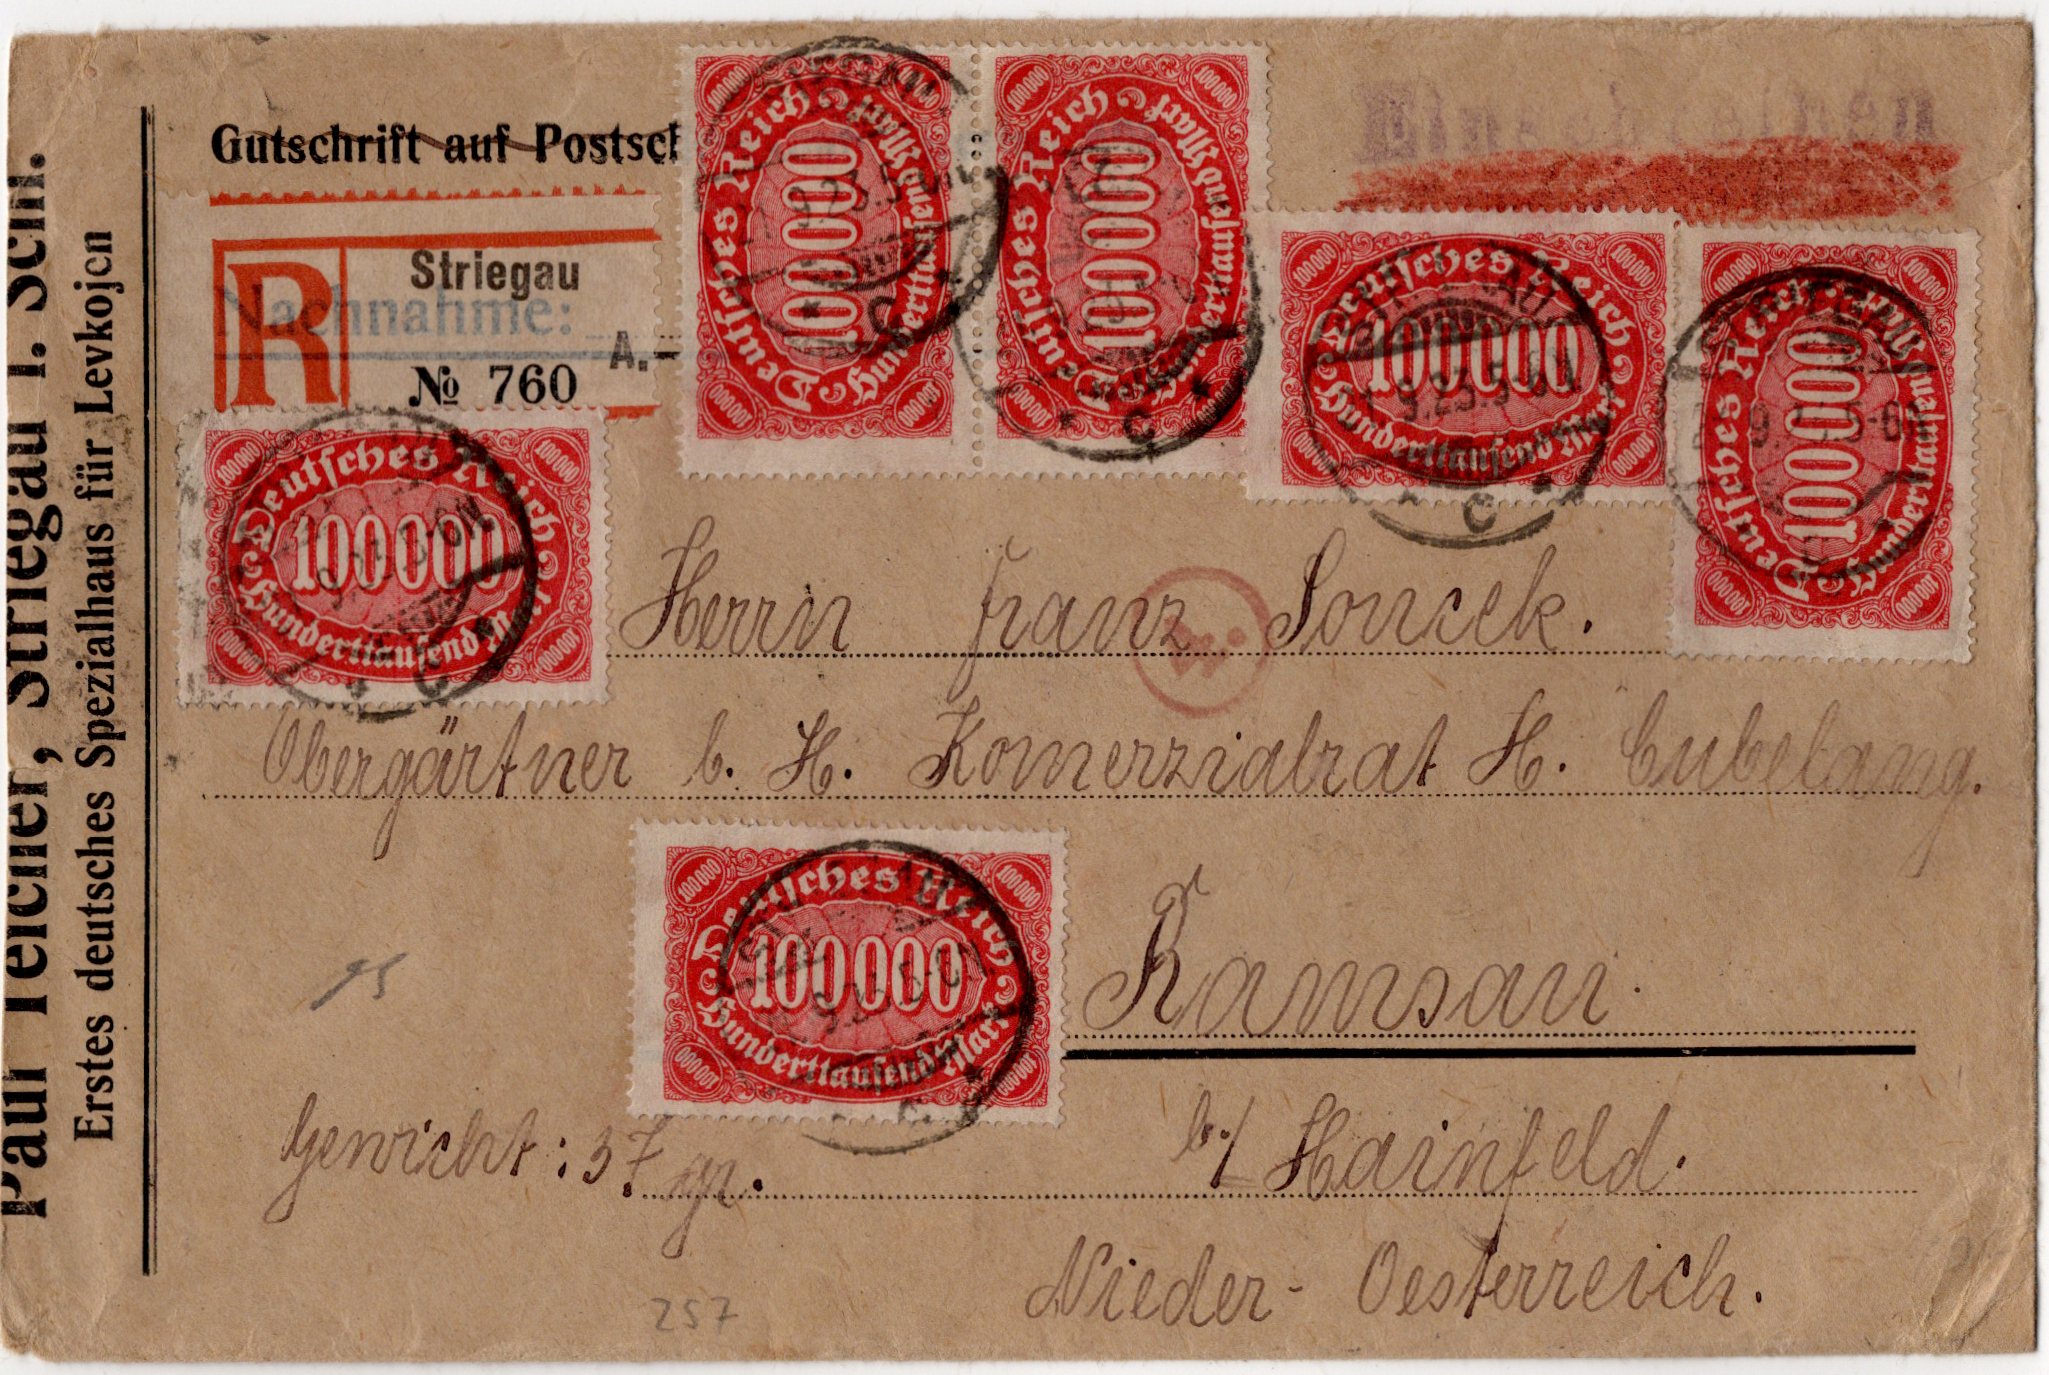 Paul Teicher, Striegau i. Schl.
Erstes deutsches Spezialhaus für Levkojen
Gutschrift auf Postsch
Striegau
Nachnahme:
R
A.-
№ 760
Deutsches Reich
100000
Hunderttausend Mark
Deutsches Reich
100000
Hunderttausend Mark
Deutsches Reich
100000
Hunderttausend Mark
Deutsches Reich
100000
Hunderttausend Mark
Deutsches Reich
100000
Hunderttausend Mark
Deutsches Reich
100000
Hunderttausend Mark
Herrn Franz Soucek.
Obergärtner b. H. Komerzialrat H. Cubelang.
Ramsau
b./ Hainfeld.
Gewicht: 37 gr.
Nieder-Oesterreich.
257